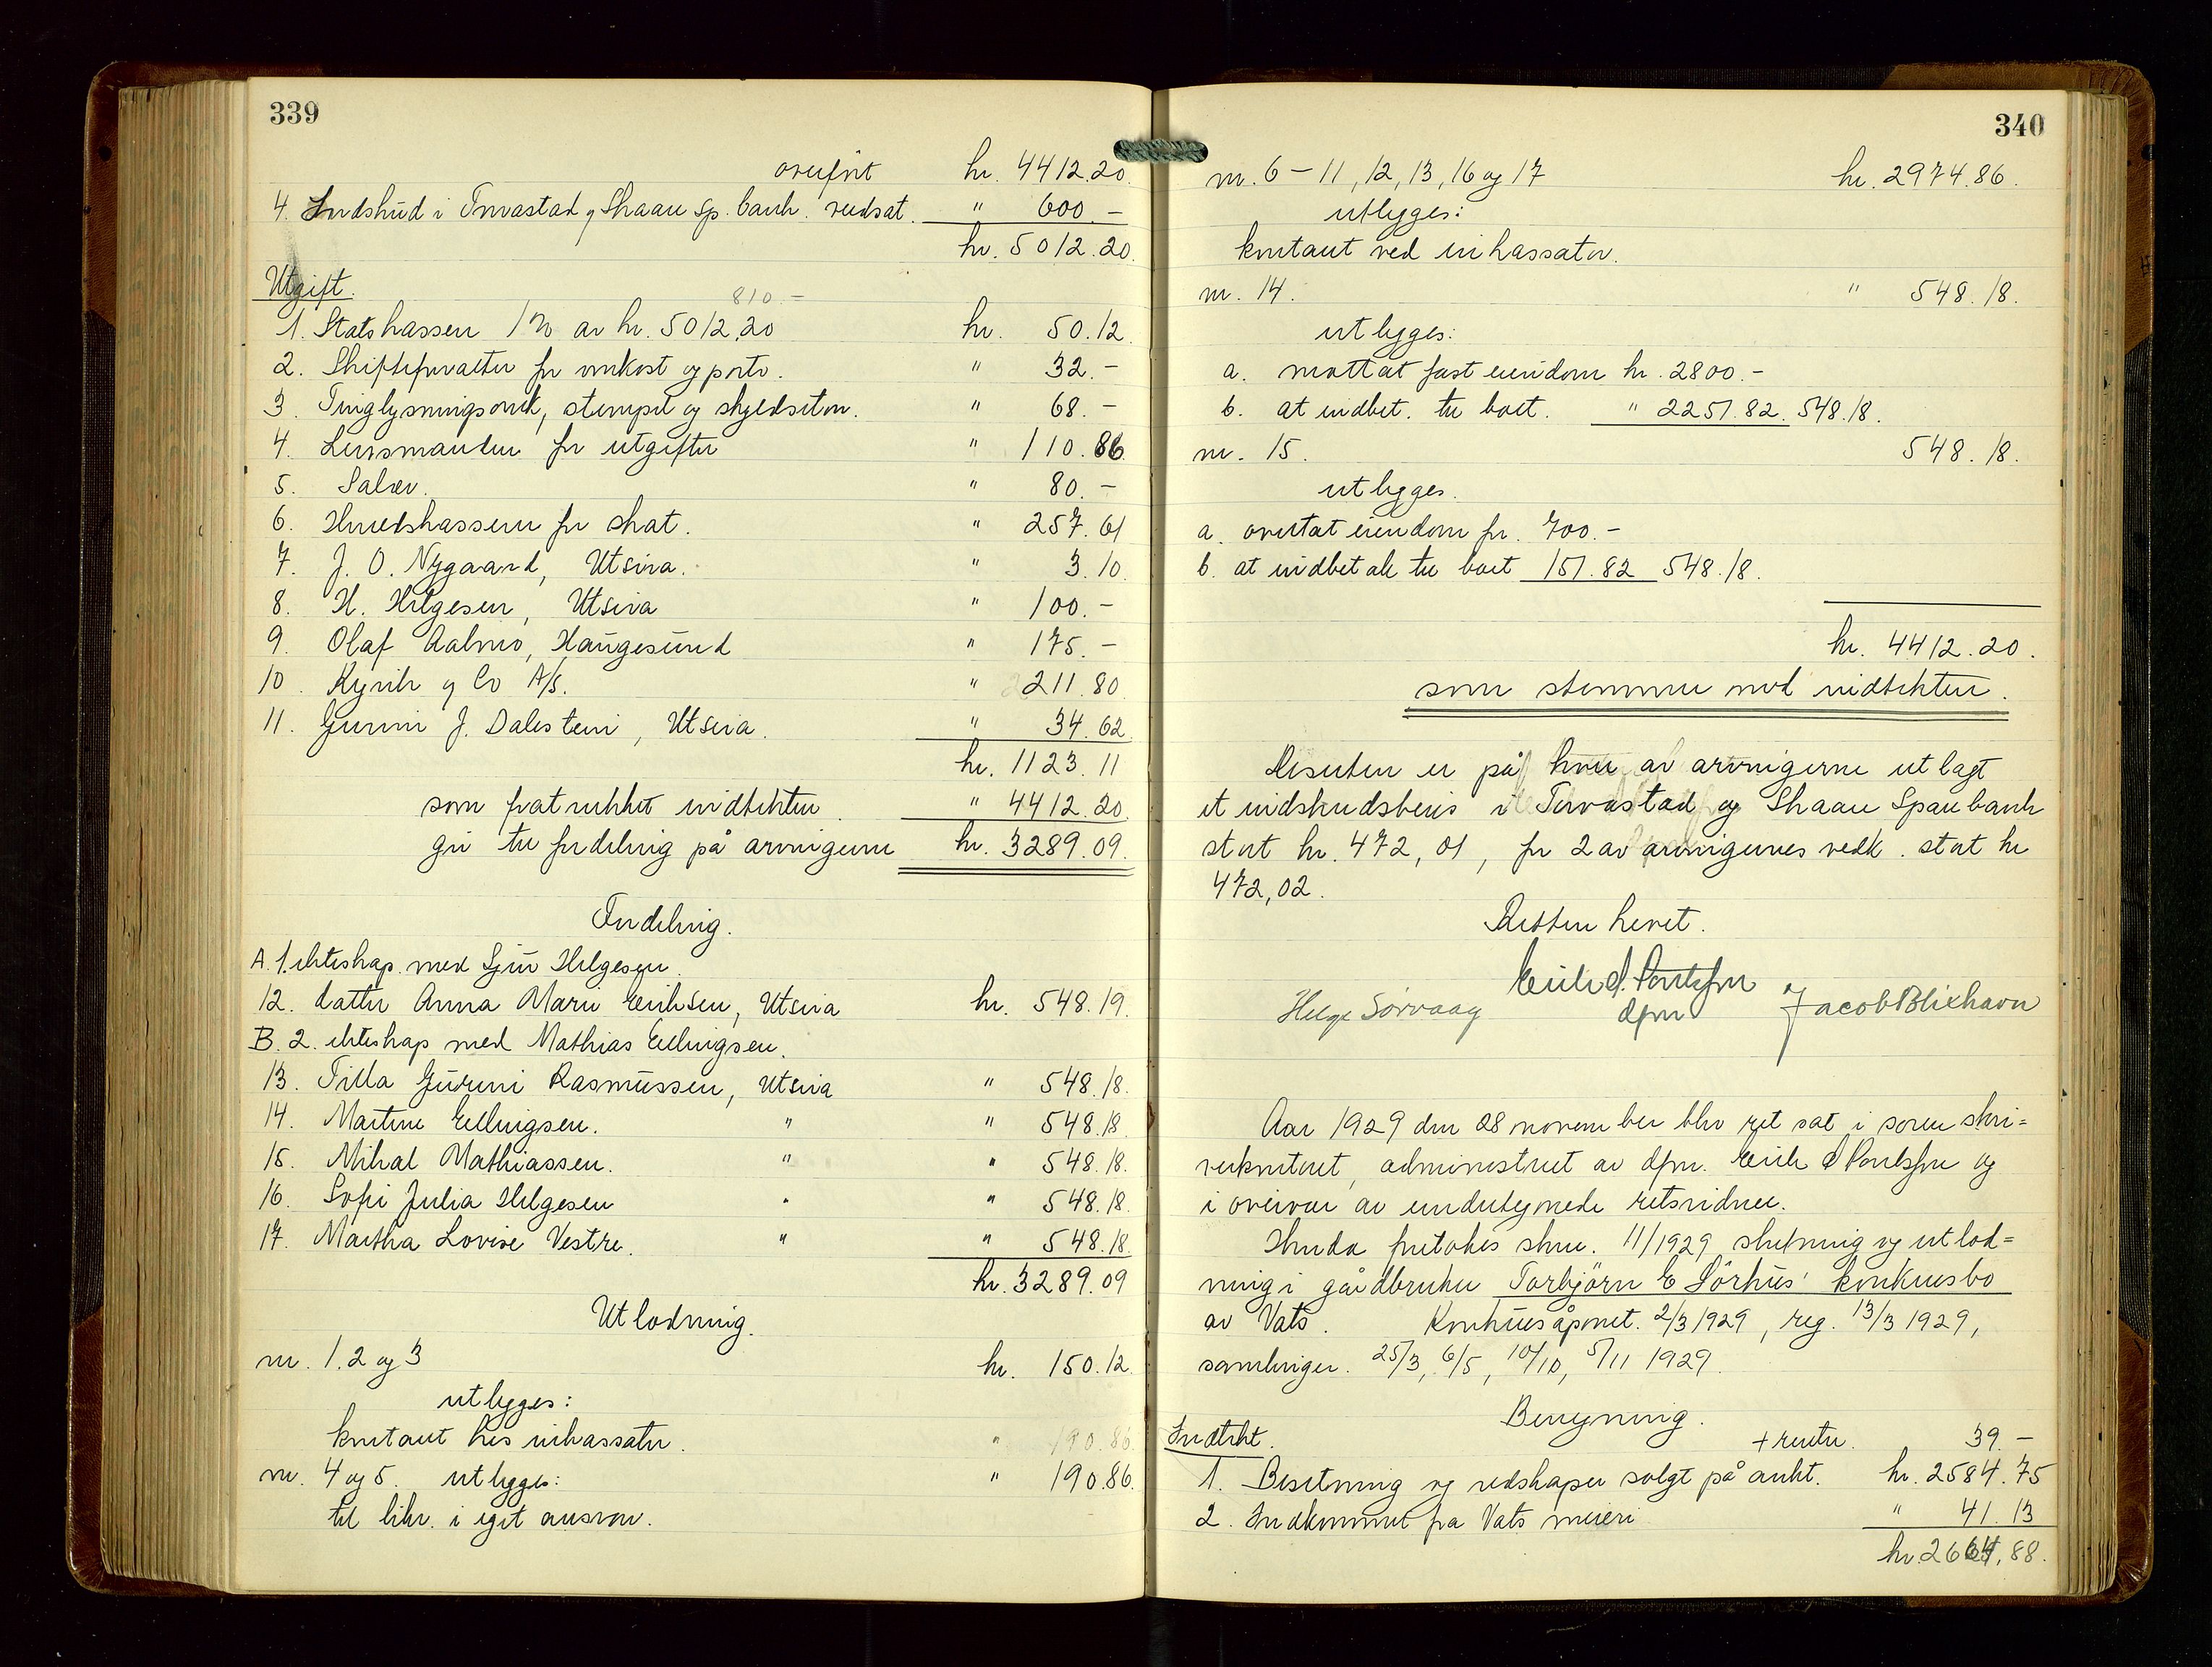 339
overført kr. 4412.20.
4. Indskud i Torvastad og Skaare Sp.bank. nedsat. " 600.-
kr. 5012.20.
Utgift.
810.-
1. Statskassen 1% av kr. 5012.20 kr. 50.12
2. Skifteforvalter for omkost og porto. " 32.-
3. Tinglysningsomk, stempel og skjødsutm. " 68.-
4. Lensmanden for utgifter " 110.86
5. Salær. " 80.-
6. Herredskassen for skat. " 257.61
7. J. O. Nygaard, Utsira. " 3.10.
8. H. Helgesen, Utsira " 100.-
9. Olaf Aalmo, Haugesund " 175.-
10. Kyvik og Co A/S. " 211.80
11. Gurine J. Dalestein, Utsira. " 34.62
kr. 1123.11
som fratrukket indtekten " 4412.20
gir til fordeling på arvingerne kr. 3289.09.
Fordeling.
A. 1. ekteskap med Sjur Helgesen.
12. datter Anna Marie Eriksen, Utsira kr. 548.19.
B. 2. ekteskap med Mathias Ellingsen.
13. Tilla Gurine Rasmussen, Utsira " 548.18.
14. Martine Ellingsen. " " 548.18.
15. Mikal Mathiassen. " " 548.18.
16. Sofie Julia Helgesen " " 548.18.
17. Martha Lovise Vestre. " " 548.18.
kr. 3289.09
Utlodning.
nr. 1. 2 og 3 kr. 150.12
utlygges:
kontant hos inkassator. " 190.86
nr. 4 og 5. utlygges: " 190.86.
til likv. i eget ansvar.
340
nr. 6 - 11, 12, 13, 16 og 17 kr. 2974.86.
utlygges:
kontant ved inkassator.
nr. 14. " 548.18.
utlygges:
a. mottat fast eiendom kr. 2800.-
b. at indbet. til boet. " 2251.82. 548.18.
nr. 15. 548.18.
utlygges.
a. overtat eiendom for 700.-
b. at indbetale til boet 151.82 548.18.
kr. 4412.20.
som stemmer med indtekten.
Desuten er på hver av arvingerne utlagt
et indskudsbevis i Torvastad og Skaare Sparebank
stort kr. 472,01, for 2 av arvingernes vedk. stort kr
472,02.
Retten hevet.
Erik S. Poulsson
Helge Sørvaag dfm og Jacob Blixhavn
Aar 1929 den 28 november blev ret sat i soren skri=
verkontoret, administrert av dfm. Erik S Poulsson og
i overvær av undertegnede retsvidner.
Herda foretokes skne. 11/1929 slutning og utlod=
ning i gårdbruker Torbjørn E Sørhus' konkursbo
av Vats. Konkursåpnet. 2/3 1929, reg. 13/3 1929,
samlinger. 25/3, 6/5, 10/10, 5/11 1929.
Beregning.
Indtekt. + renter. 39.-
1. Besetning og redskaper solgt på aukt. kr. 2584.75
2. Indkommet fra Vats meieri " 41.13
kr. 2664,88.